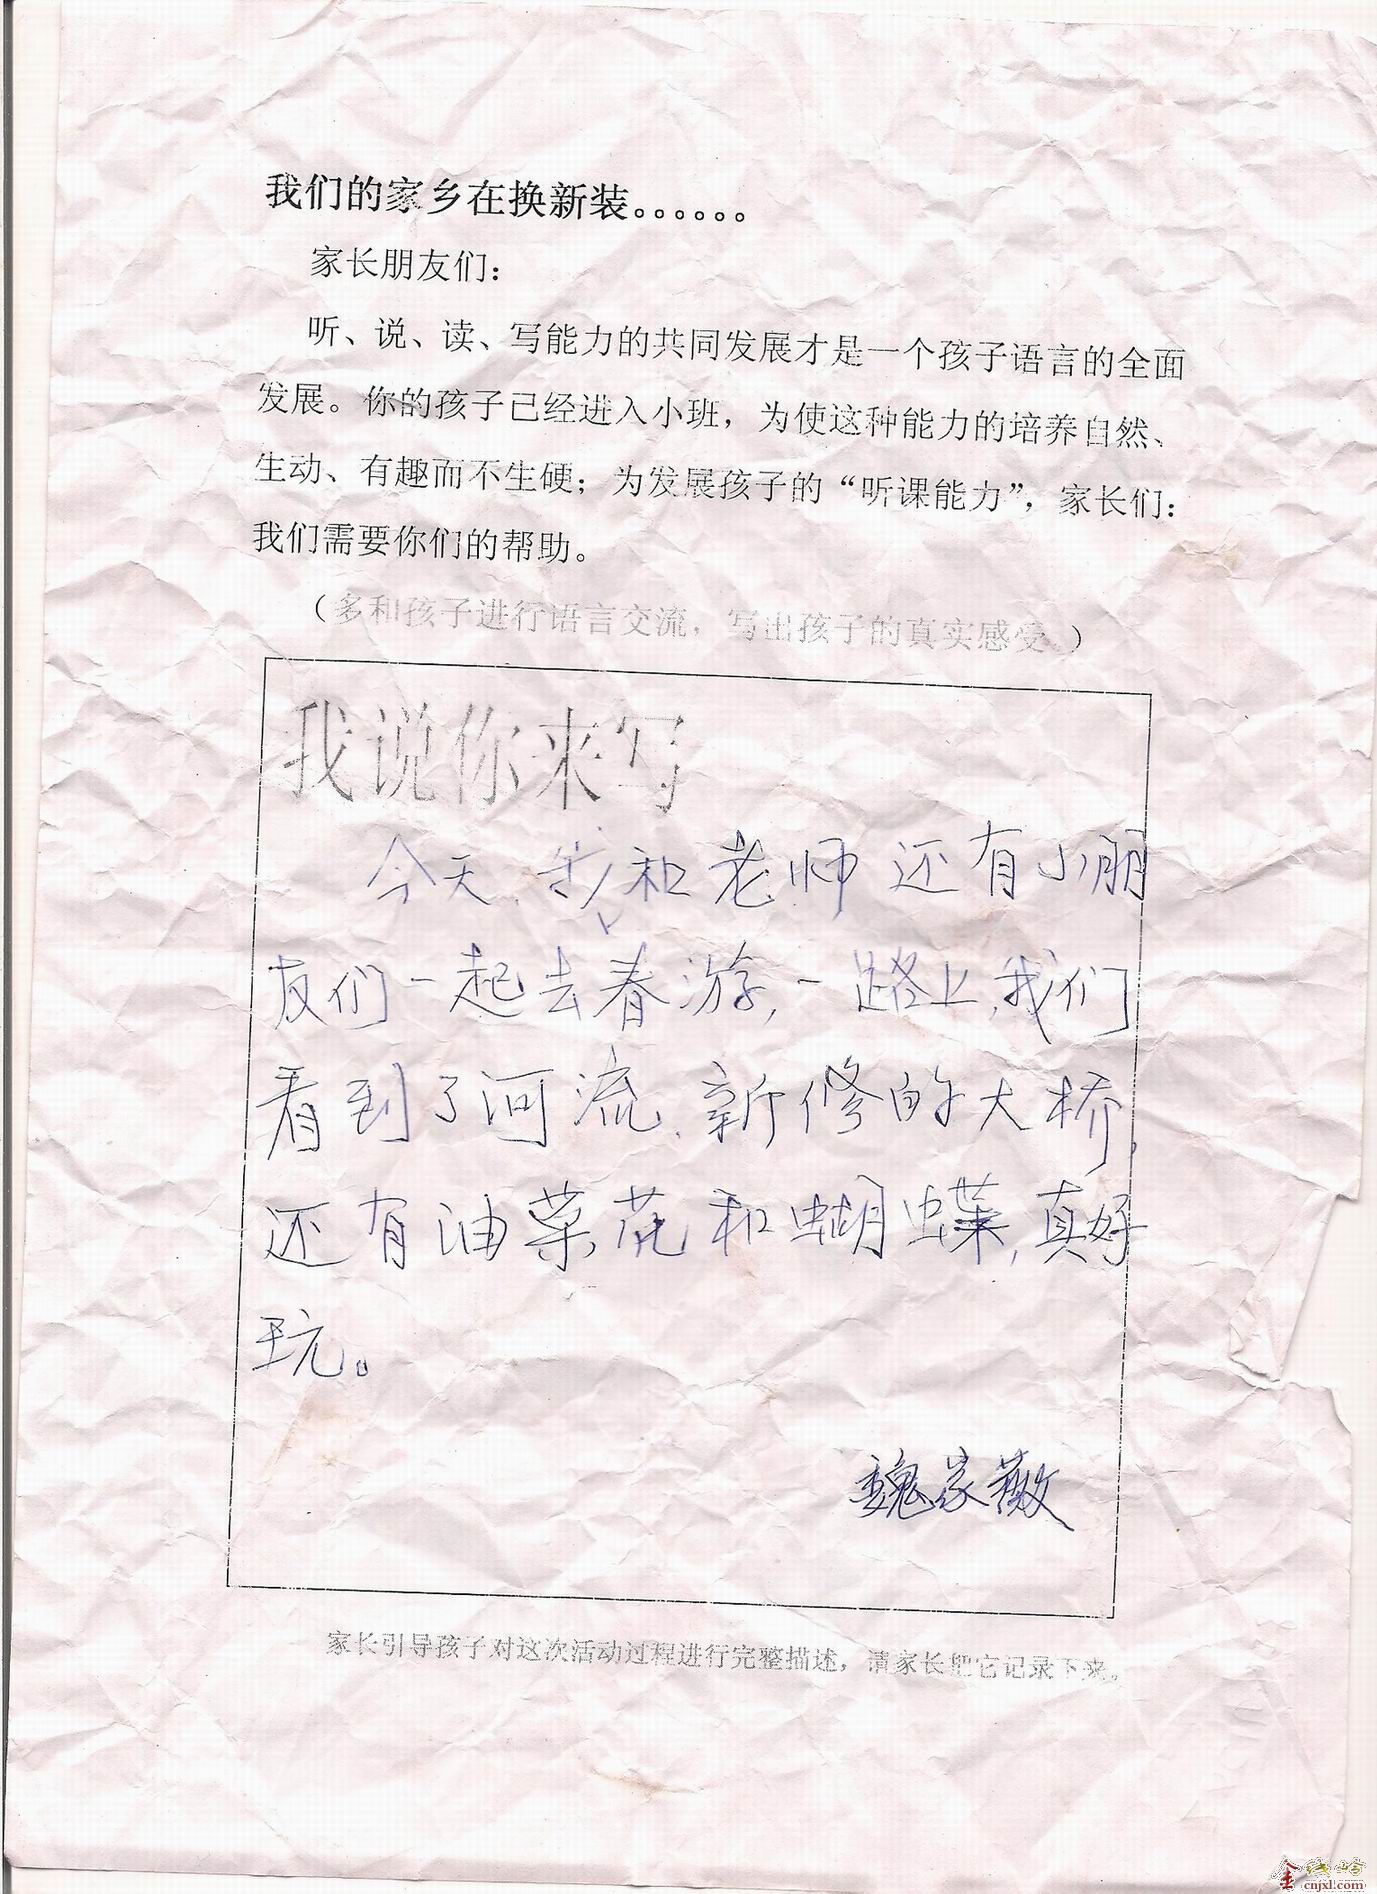 我们的家乡在换新装。。。。。。
家长朋友们：
听、说、读、写能力的共同发展才是一个孩子语言的全面
发展。你的孩子已经进入小班，为使这种能力的培养自然、
生动、有趣而不生硬；为发展孩子的“听课能力”，家长们：
我们需要你们的帮助。
（多和孩子进行语言交流，写出孩子的真实感受。）
我说你来写
今天、我和老师还有小朋
友们一起去春游,一路上,我们
看到了河流、新修的大桥,
还有油菜花和蝴蝶,真好
玩。
魏家薇
家长引导孩子对这次活动过程进行完整描述，请家长把它记录下来。
金线岭
cnjxl.com